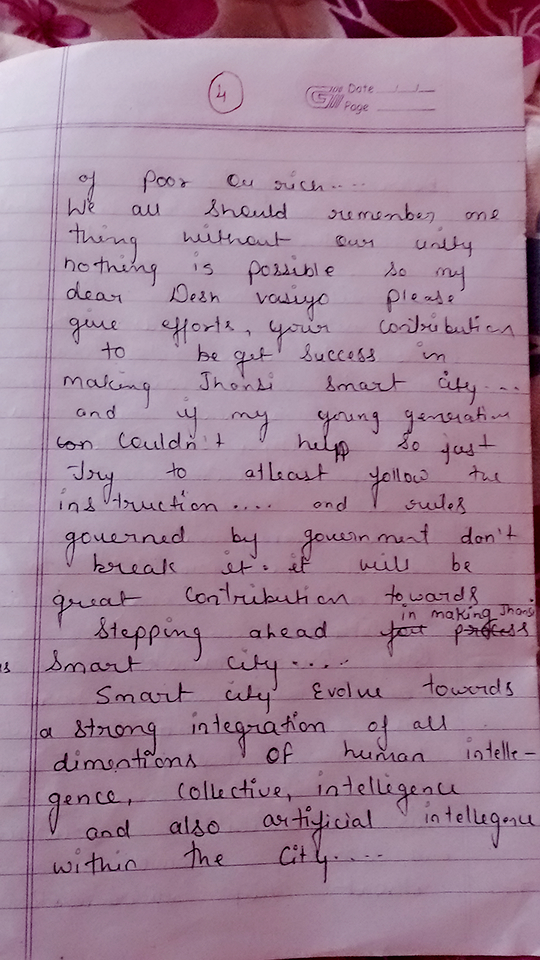 4
Date
Page
of poor ou rich....
We all should remember one
thing without our unity
nothing is possible so my
dear Desh vasiyo please
give efforts, your contribution
to be get success in
making Jhansi smart city....
and if my young generation
couldn't help so just
try to atleast follow the
instruction.... and rules
governed by government don't
break it. it will be
great contribution towards
in making Jhansi
Stepping ahead for process
smart city.....
Smart city Evolve towards
a strong integration of all
dimentions of human intelle-
gence, collective, intellegence
and also artificial intellegence
within the city....